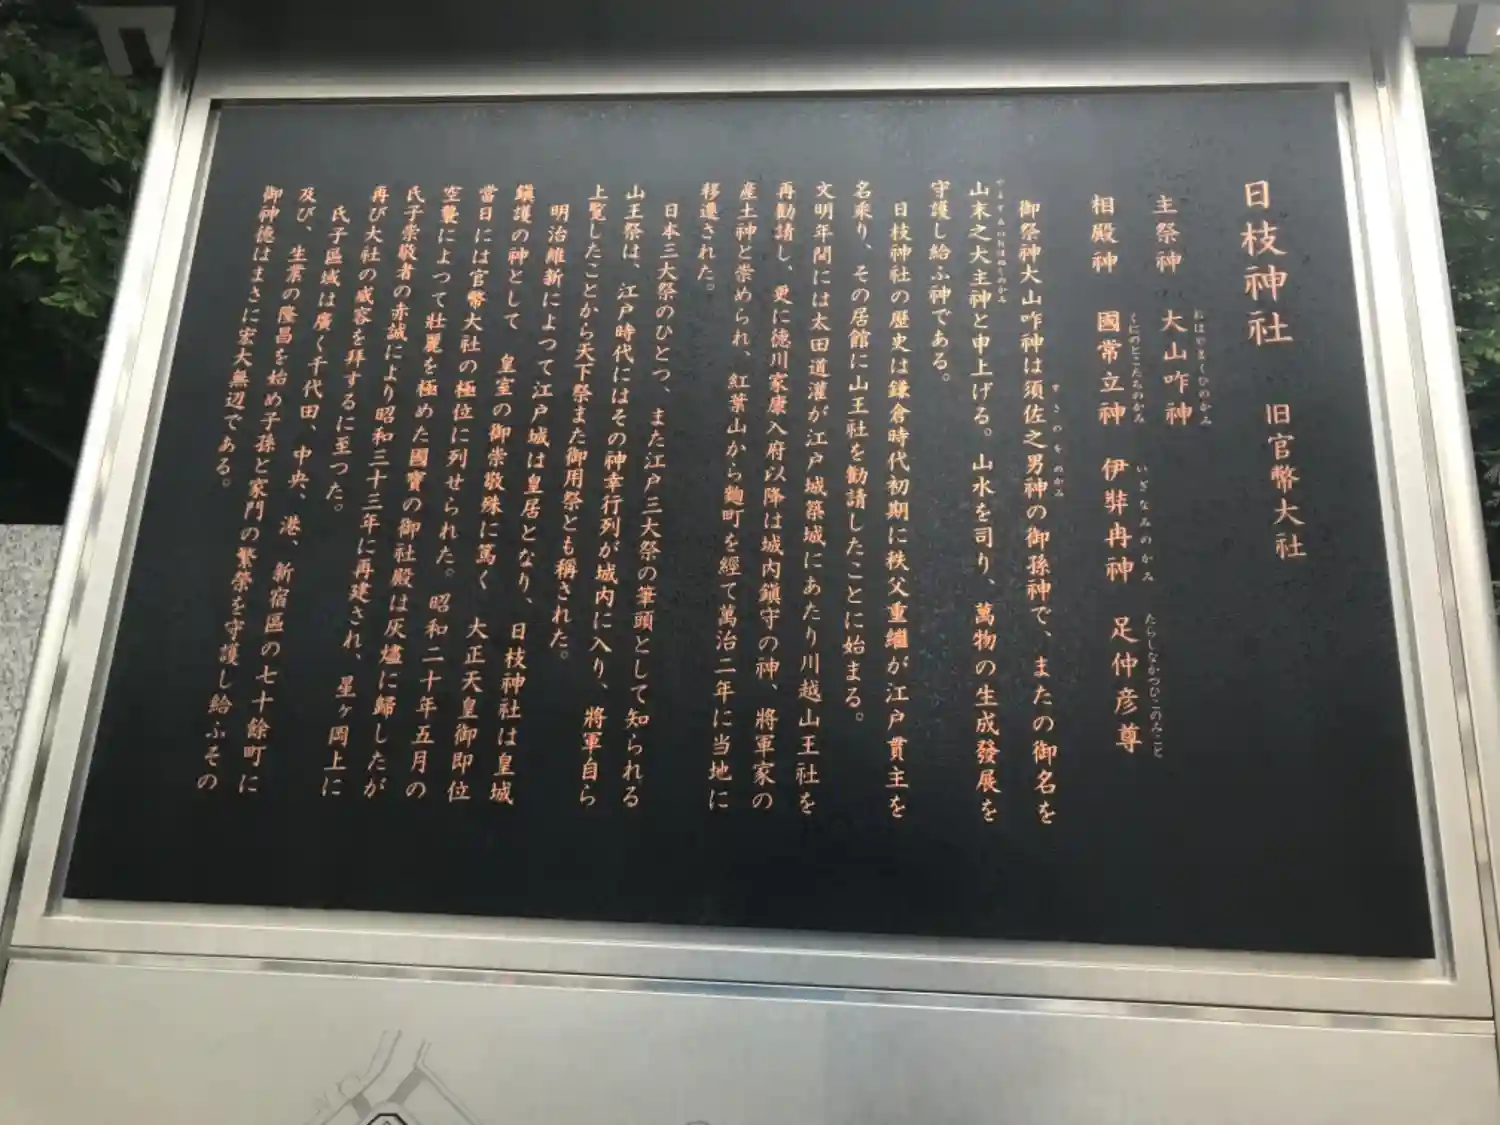 日枝神社 旧官幣大社
主祭神 大山咋神
おほやまくひのかみ
相殿神 國常立神 伊弉冉神 足仲彦尊
くにのとこたちのかみ いざなみのかみ たらしなかつひこのみこと
御祭神大山咋神は須佐之男神の御孫神で、またの御名を
すさのをのかみ
山末之大主神と申上げる。山水を司り、萬物の生成發展を
やますゑのおほぬしのかみ
守護し給ふ神である。
日枝神社の歴史は鎌倉時代初期に秩父重繼が江戸貫主を
名乗り、その居館に山王社を勧請したことに始まる。
文明年間には太田道灌が江戸城築城にあたり川越山王社を
再勧請し、更に徳川家康入府以降は城内鎭守の神、將軍家の
産土神と崇められ、紅葉山から麹町を經て萬治二年に当地に
移遷された。
日本三大祭のひとつ、また江戸三大祭の筆頭として知られる
山王祭は、江戸時代にはその神幸行列が城内に入り、將軍自ら
上覧したことから天下祭また御用祭とも稱された。
明治維新によつて江戸城は皇居となり、日枝神社は皇城
鎭護の神として 皇室の御崇敬殊に篤く 大正天皇御即位
當日には官幣大社の極位に列せられた。昭和二十年五月の
空襲によつて壮麗を極めた國寶の御社殿は灰燼に歸したが
氏子崇敬者の赤誠により昭和三十三年に再建され、星ヶ岡上に
再び大社の威容を拝するに至つた。
氏子區域は廣く千代田、中央、港、新宿區の七十餘町に
及び、生業の隆昌を始め子孫と家門の繁榮を守護し給ふその
御神徳はまさに宏大無辺である。